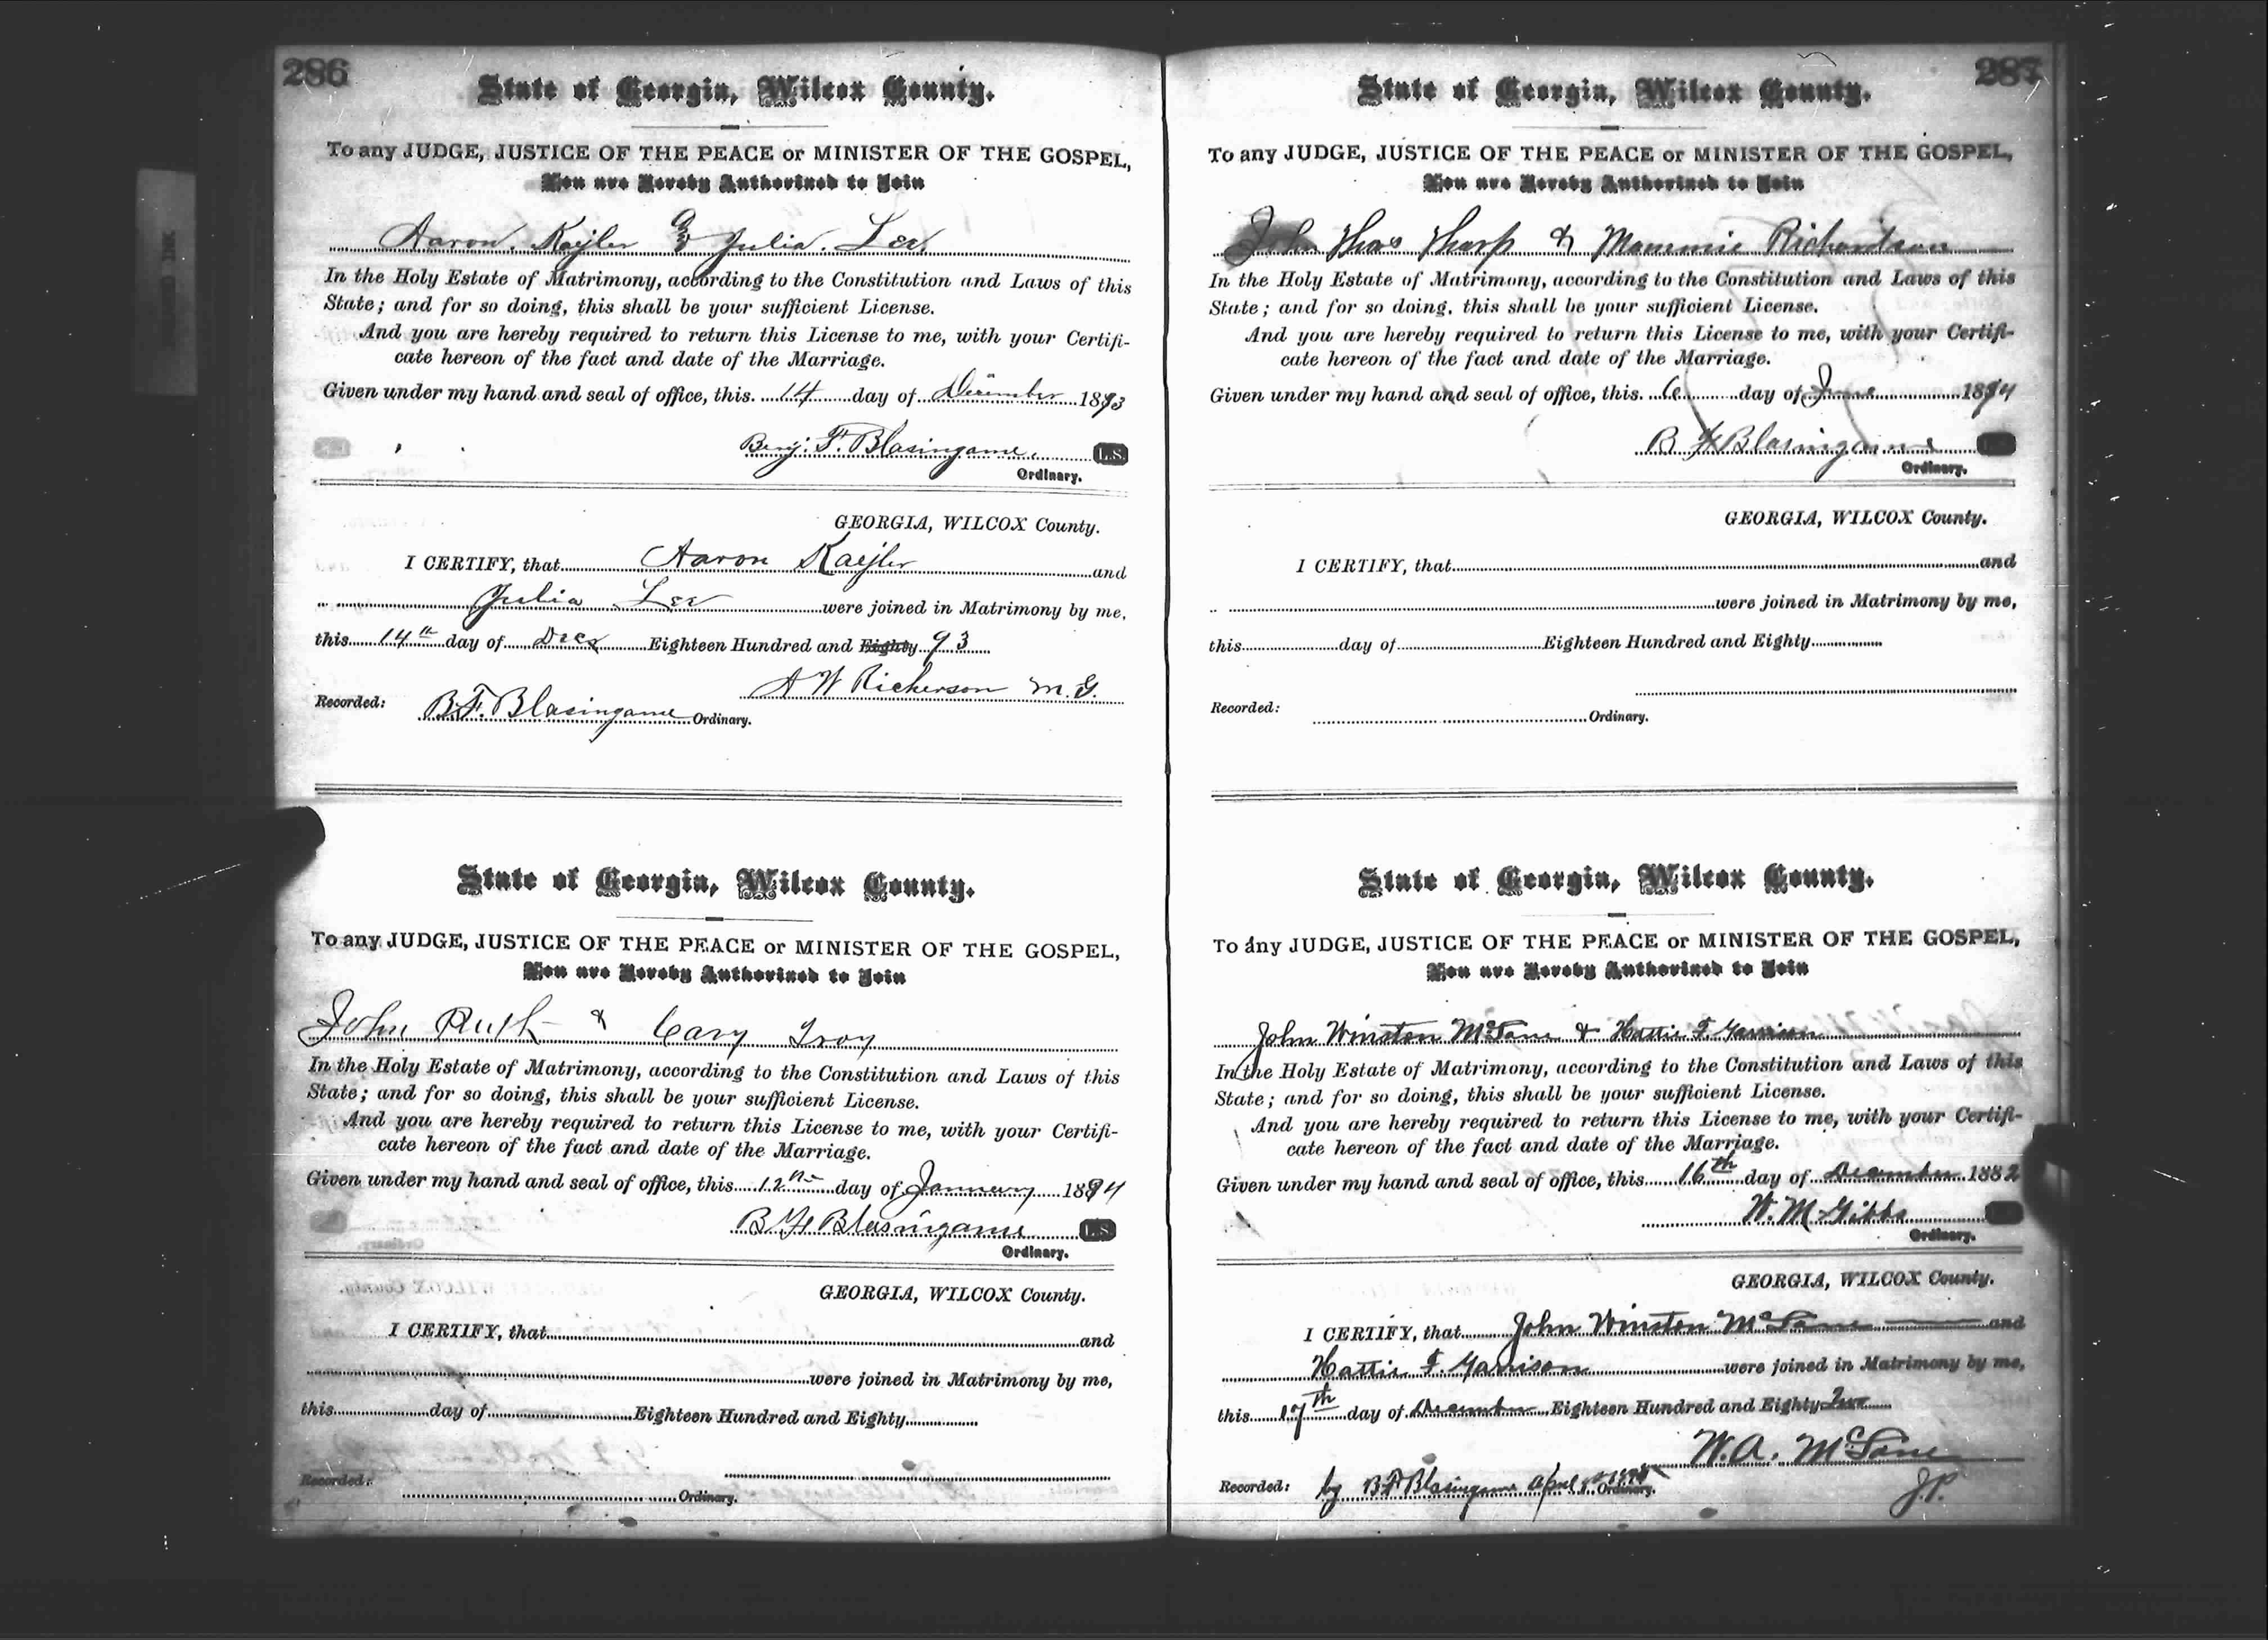 286
State of Georgia, Wilcox County.
To any JUDGE, JUSTICE OF THE PEACE or MINISTER OF THE GOSPEL,
You are Hereby Authorized to Join
Aaron Kaejler & Julia Lee
In the Holy Estate of Matrimony, according to the Constitution and Laws of this
State; and for so doing, this shall be your sufficient License.
And you are hereby required to return this License to me, with your Certifi-
cate hereon of the fact and date of the Marriage.
Given under my hand and seal of office, this 14 day of December 1893
Benj. F. Blasingame, L.S.
Ordinary.
GEORGIA, WILCOX County.
I CERTIFY, that Aaron Kaejler and
Julia Lee were joined in Matrimony by me,
this 14th day of Dec Eighteen Hundred and Eighty 93
A W Rickerson M.G.
Recorded: B.F. Blasingame Ordinary.
State of Georgia, Wilcox County.
To any JUDGE, JUSTICE OF THE PEACE or MINISTER OF THE GOSPEL,
You are Hereby Authorized to Join
John Ruth & Cary Troy
In the Holy Estate of Matrimony, according to the Constitution and Laws of this
State; and for so doing, this shall be your sufficient License.
And you are hereby required to return this License to me, with your Certifi-
cate hereon of the fact and date of the Marriage.
Given under my hand and seal of office, this 12th day of January 1894
B F Blasingame L.S.
Ordinary.
GEORGIA, WILCOX County.
I CERTIFY, that and
were joined in Matrimony by me,
this day of Eighteen Hundred and Eighty
Recorded: Ordinary.
287
State of Georgia, Wilcox County.
To any JUDGE, JUSTICE OF THE PEACE or MINISTER OF THE GOSPEL,
You are Hereby Authorized to Join
John Thos Tharp & Mammie Richardson
In the Holy Estate of Matrimony, according to the Constitution and Laws of this
State; and for so doing, this shall be your sufficient License.
And you are hereby required to return this License to me, with your Certifi-
cate hereon of the fact and date of the Marriage.
Given under my hand and seal of office, this 6 day of June 1894
B F Blasingame
Ordinary.
GEORGIA, WILCOX County.
I CERTIFY, that and
were joined in Matrimony by me,
this day of Eighteen Hundred and Eighty
Recorded: Ordinary.
State of Georgia, Wilcox County.
To any JUDGE, JUSTICE OF THE PEACE or MINISTER OF THE GOSPEL,
You are Hereby Authorized to Join
John Winston McLane & Hattie F. Garrison
In the Holy Estate of Matrimony, according to the Constitution and Laws of this
State; and for so doing, this shall be your sufficient License.
And you are hereby required to return this License to me, with your Certifi-
cate hereon of the fact and date of the Marriage.
Given under my hand and seal of office, this 16th day of December 1882
W. M. Gibbs
Ordinary.
GEORGIA, WILCOX County.
I CERTIFY, that John Winston McLane and
Hattie F. Garrison were joined in Matrimony by me,
this 17th day of December Eighteen Hundred and Eighty Two
W. A. McLane
J.P.
Recorded: by B F Blasingame April Ordinary.